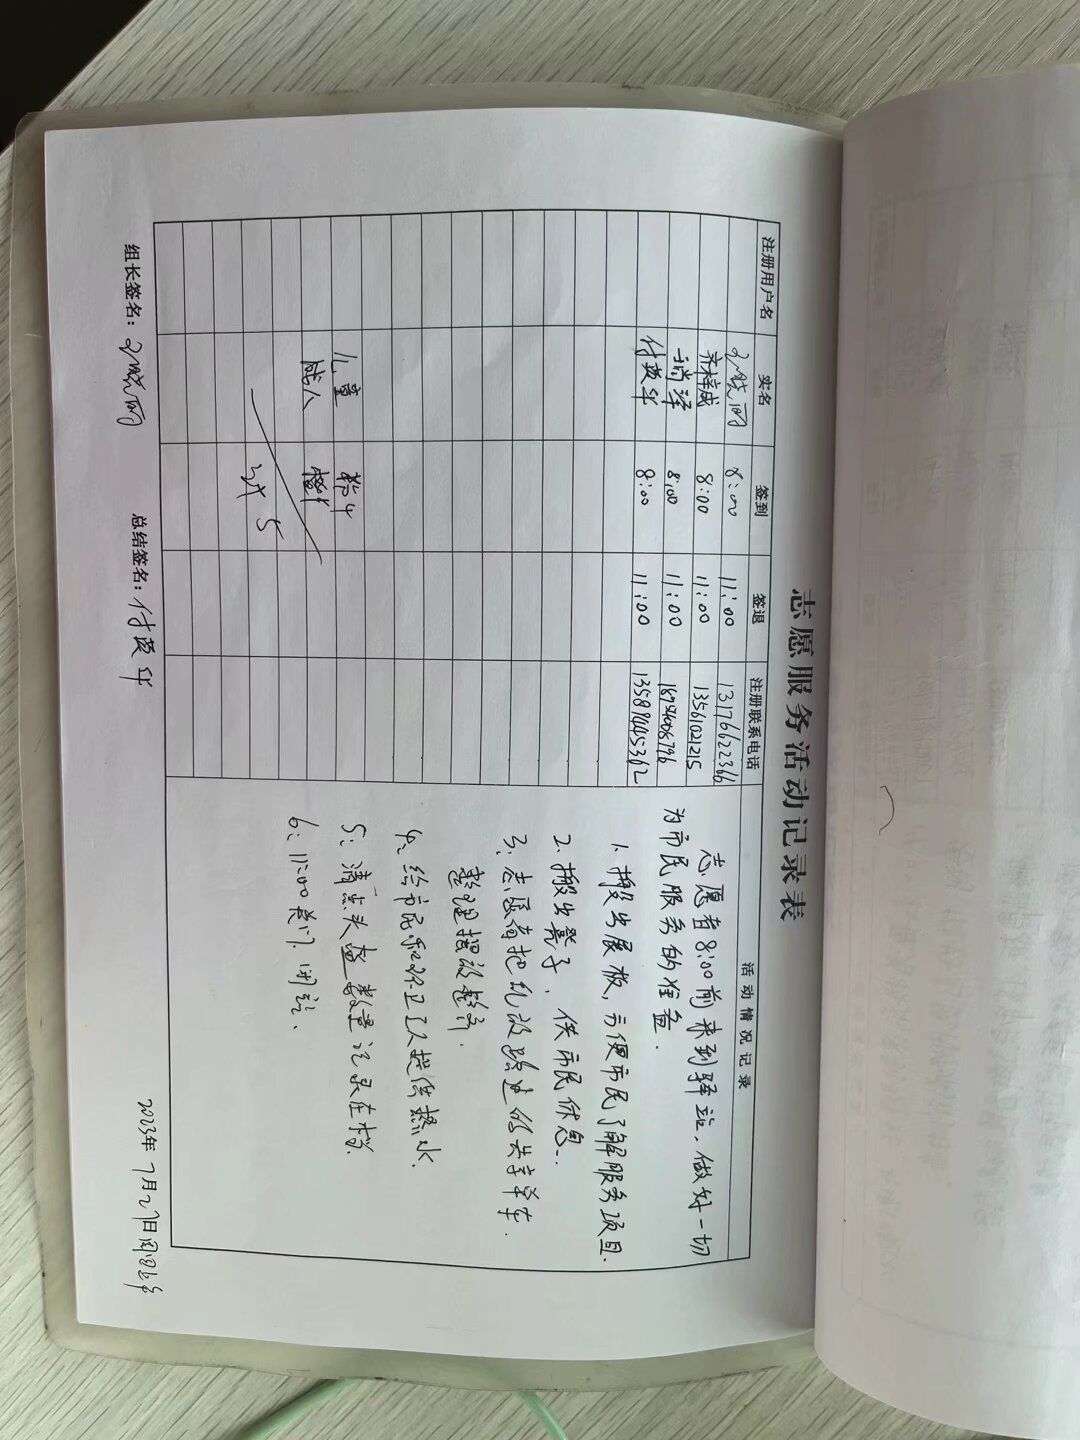 志愿服务活动记录表
注册用户名 实名 签到 签退 注册联系电话 活动情况记录
8:00 11:00 13176622366
齐梓成 8:00 11:00 13561021215
8:00 11:00
付爱华 8:00 11:00 13589445362
志愿者8:00前来到驿站,做好一切
为市民服务的准备.
1. 搬出展板,方便市民了解服务项目.
2. 搬出凳子,供市民休息.
3. 志愿者把乱放路边的共享单车
整理摆放整齐.
4. 给市民和环卫工人提供热水.
5. 清点头盔数量记录在档.
6. 11:00关门、闭站.
儿童
成人
5
组长签名:
总结签名:付爱华
2023年7月27日周四上午